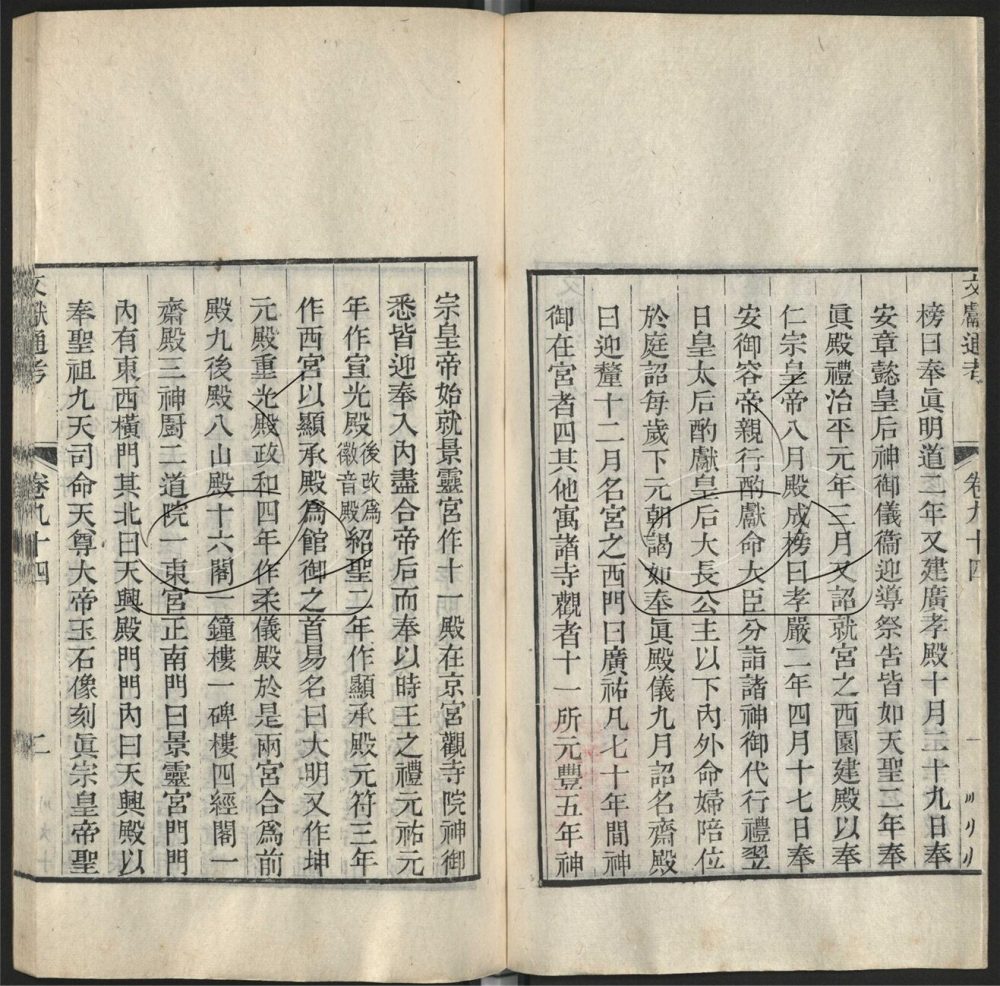 文獻通考
卷九十四
榜曰奉眞明道二年又建廣孝殿十月二十九日奉
安章懿皇后神御儀衞迎導祭告皆如天聖二年奉
眞殿禮治平元年三月又詔就宮之西園建殿以奉
仁宗皇帝八月殿成榜曰孝嚴二年四月十七日奉
安御容帝親行酌獻命大臣分詣諸神御代行禮翌
日皇太后酌獻皇后大長公主以下內外命婦陪位
於庭詔每歲下元朝謁如奉眞殿儀九月詔名齋殿
曰迎釐十二月名宮之西門曰廣祐凡七十年間神
御在宮者四其他寓諸寺觀者十一所元豐五年神
宗皇帝始就景靈宮作十一殿在京宮觀寺院神御
悉皆迎奉入內盡合帝后而奉以時王之禮元祐元
年作宣光殿後改爲徽音殿紹聖二年作顯承殿元符三年
作西宮以顯承殿爲館御之首易名曰大明又作坤
元殿重光殿政和四年作柔儀殿於是兩宮合爲前
殿九後殿八山殿十六閣一鐘樓一碑樓四經閣一
齋殿三神厨二道院一東宮正南門曰景靈宮門門
內有東西橫門其北曰天興殿門門內曰天興殿以
奉聖祖九天司命天尊大帝玉石像刻眞宗皇帝聖
文獻通考
卷九十四
二